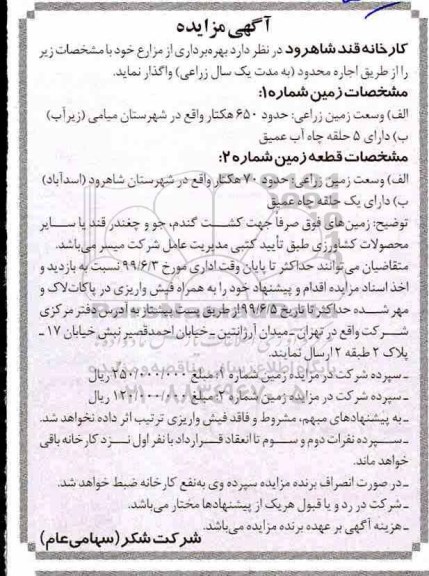 آگهی مزایده
کارخانه قند شاهرود در نظر دارد بهره‌برداری از مزارع خود با مشخصات زیر
را از طریق اجاره محدود (به مدت یک سال زراعی) واگذار نماید.
مشخصات زمین شماره ۱:
الف) وسعت زمین زراعی: حدود ۶۵۰ هکتار واقع در شهرستان میامی (زیرآب)
ب) دارای ۵ حلقه چاه آب عمیق
مشخصات قطعه زمین شماره ۲:
الف) وسعت زمین زراعی: حدود ۷۰ هکتار واقع در شهرستان شاهرود (اسدآباد)
ب) دارای یک حلقه چاه عمیق
توضیح: زمین‌های فوق صرفا جهت کشت گندم، جو و چغندر قند یا سایر
محصولات کشاورزی طبق تأیید کتبی مدیریت عامل شرکت میسر می‌باشد.
متقاضیان می‌توانند حداکثر تا پایان وقت اداری مورخ ۹۹/۶/۳ نسبت به بازدید و
اخذ اسناد مزایده اقدام و پیشنهاد خود را به همراه فیش واریزی در پاکات لاک و
مهر شده حداکثر تا تاریخ ۹۹/۶/۵ از طریق پست پیشتاز به آدرس دفتر مرکزی
شرکت واقع در تهران ـ میدان آرژانتین ـ خیابان احمدقصیر نبش خیابان ۱۷ ـ
پلاک ۲ طبقه ۲ ارسال نمایند.
ـ سپرده شرکت در مزایده زمین شماره ۱: مبلغ ۲۵۰/۰۰۰/۰۰۰ ریال
ـ سپرده شرکت در مزایده زمین شماره ۲: مبلغ ۱۲۰/۰۰۰/۰۰۰ ریال
ـ به پیشنهادهای مبهم، مشروط و فاقد فیش واریزی ترتیب اثر داده نخواهد شد.
ـ سپرده نفرات دوم و سوم تا انعقاد قرارداد با نفر اول نزد کارخانه باقی
خواهد ماند.
ـ در صورت انصراف برنده مزایده سپرده وی به‌نفع کارخانه ضبط خواهد شد.
ـ شرکت در رد و یا قبول هر یک از پیشنهادها مختار می‌باشد.
ـ هزینه آگهی بر عهده برنده مزایده می‌باشد.
شرکت شکر (سهامی عام)